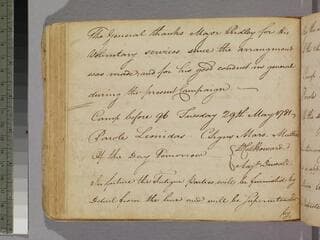 The General thanks Major Pudley for his
Voluntary services since the arrangement
was made, and for his good conduct in general
during the present Campaign —
Camp before 96 Tuesday 29th May 1781,
Parole Leonidas C Signs Mars.
Of the Day Tomorrow { Lt Col Howard
{ Majr Dewall
In future the Fatigue parties will be furnished by
Detail from the line and will be Superintended
by